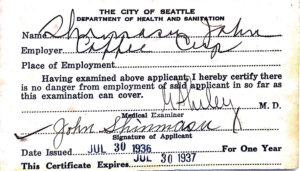 THE CITY OF SEATTLE
DEPARTMENT OF HEALTH AND SANITATION
Name Shinmasu, John
Employer Coffee Cup
Place of Employment
Having examined above applicant, I hereby certify there
is no danger from employment of said applicant in so far as
this examination can cover.
M. D.
Medical Examiner
John Shinmasu
Signature of Applicant
Date Issued JUL 30 1936 For One Year
This Certificate Expires JUL 30 1937